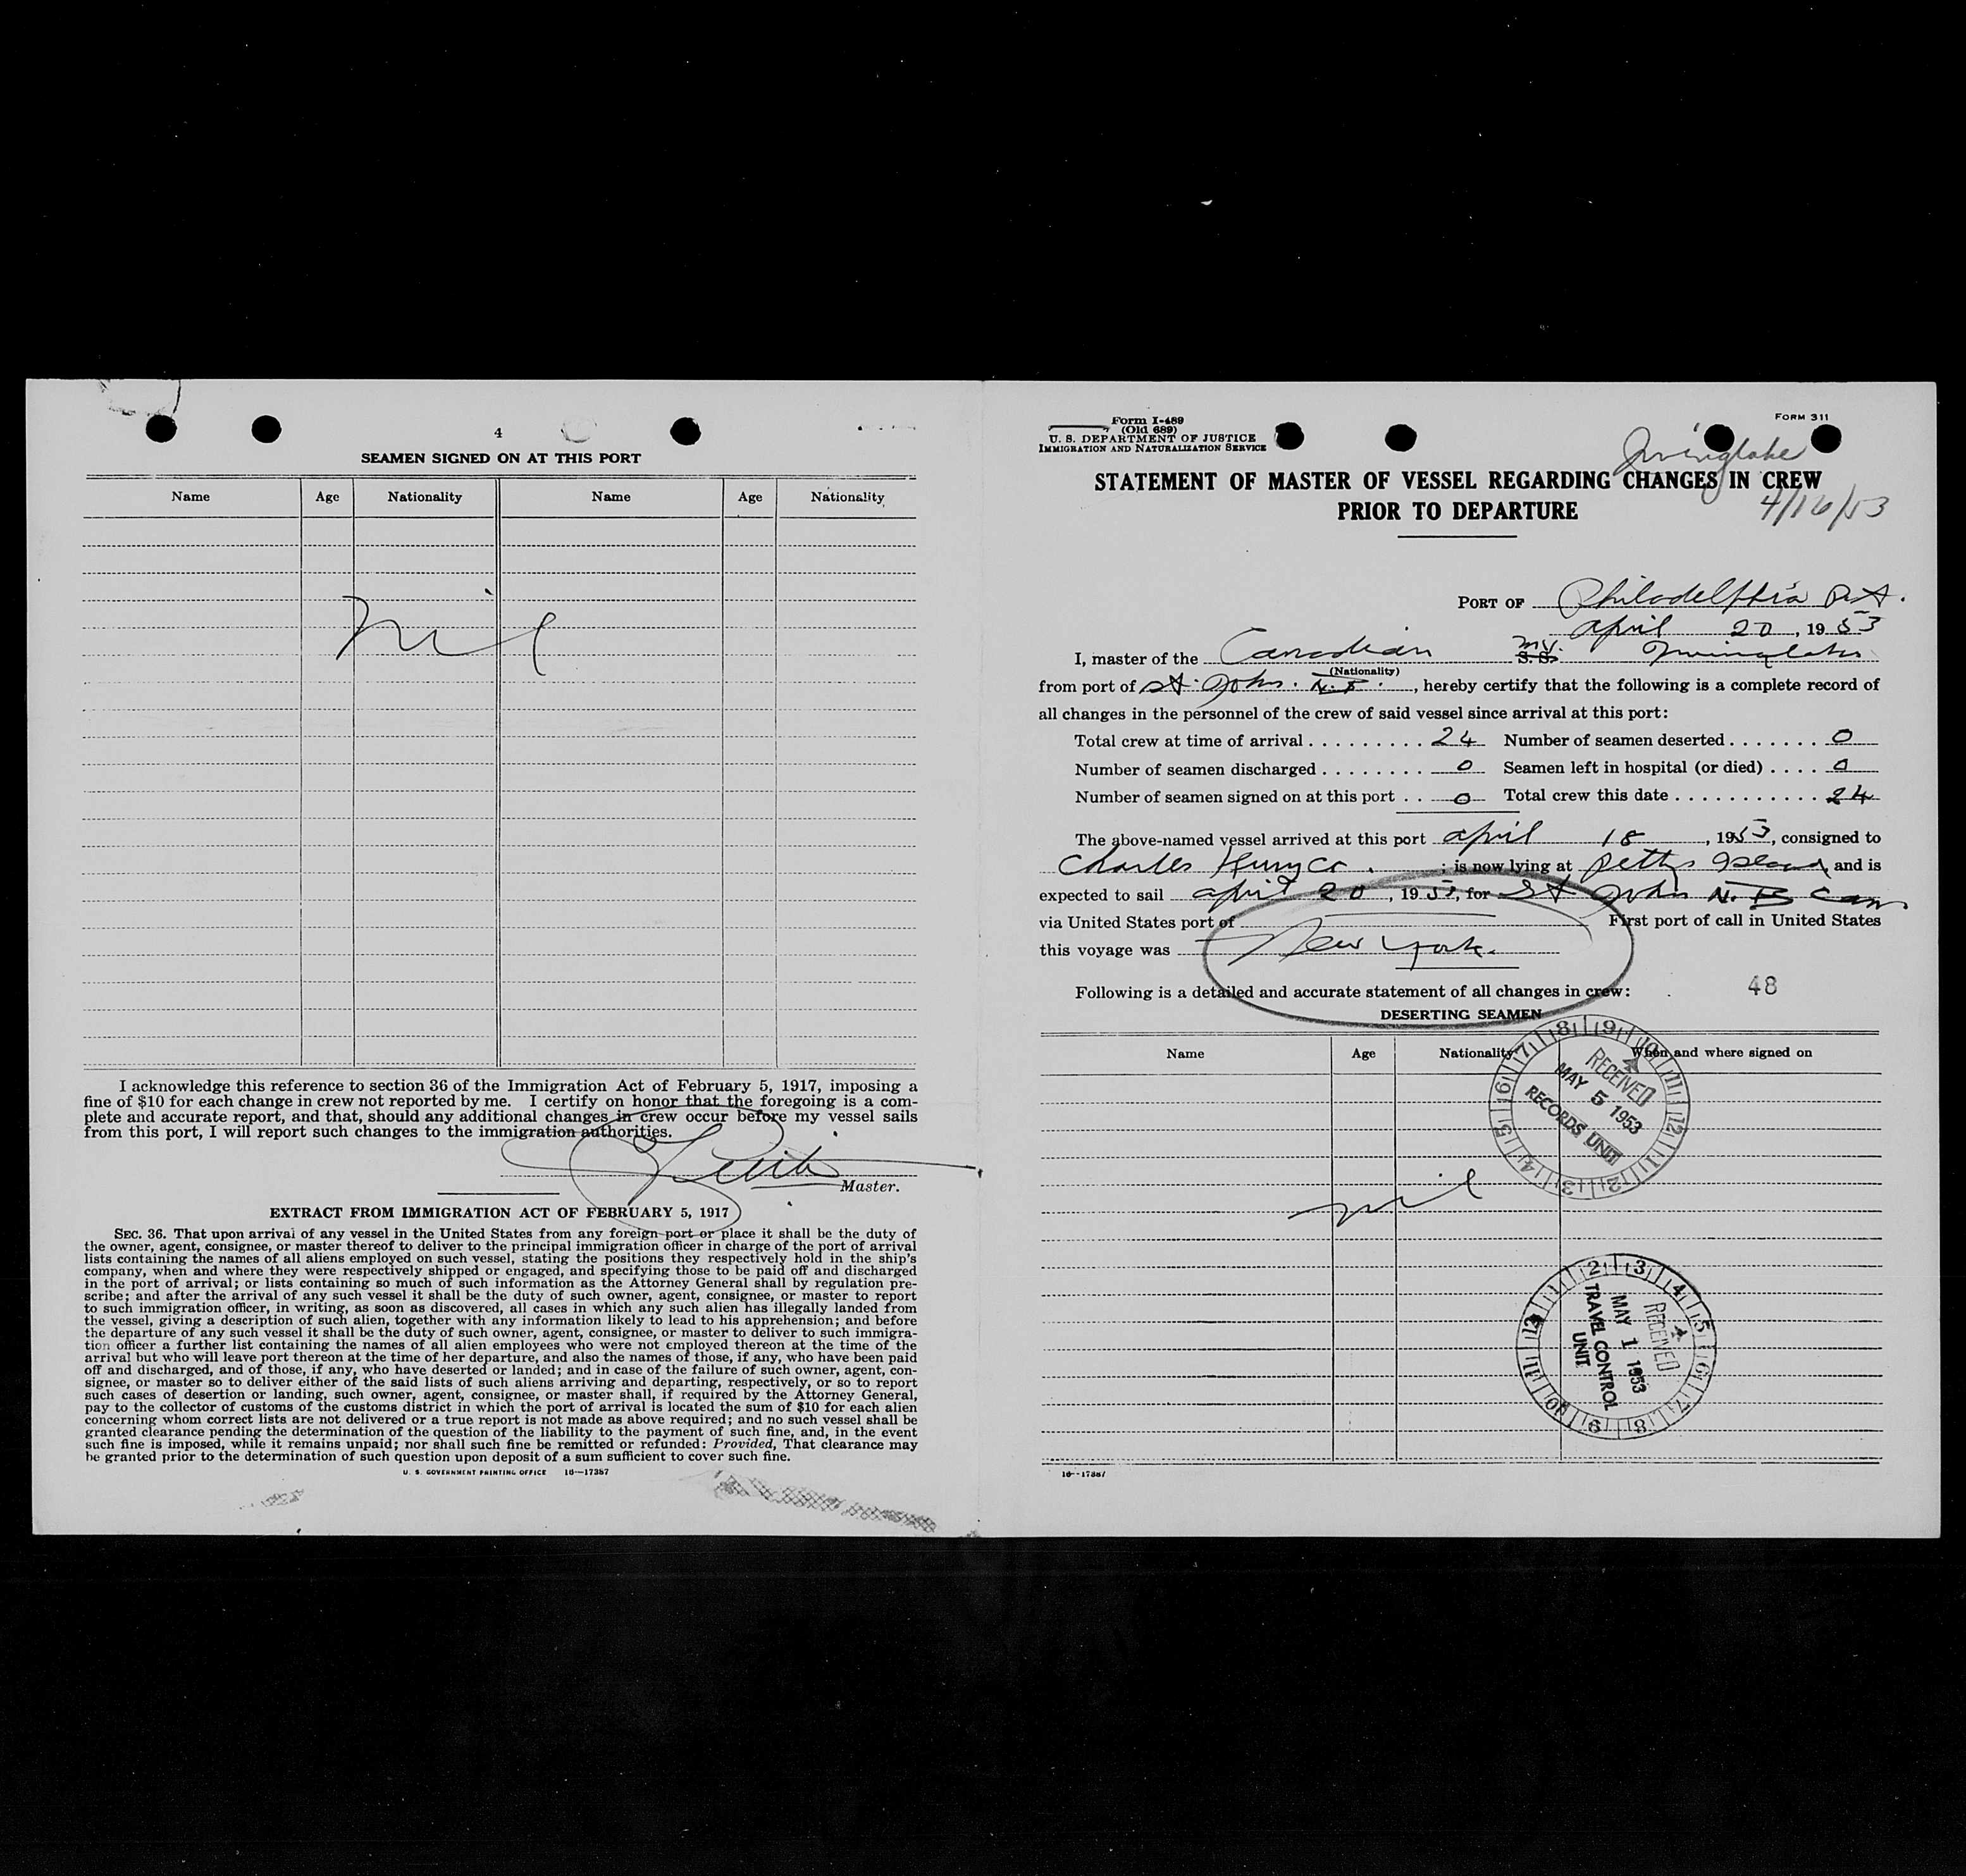 4
SEAMEN SIGNED ON AT THIS PORT
Name Age Nationality Name Age Nationality
nil
I acknowledge this reference to section 36 of the Immigration Act of February 5, 1917, imposing a
fine of $10 for each change in crew not reported by me. I certify on honor that the foregoing is a com-
plete and accurate report, and that, should any additional changes in crew occur before my vessel sails
from this port, I will report such changes to the immigration authorities.
Master.
EXTRACT FROM IMMIGRATION ACT OF FEBRUARY 5, 1917
SEC. 36. That upon arrival of any vessel in the United States from any foreign port or place it shall be the duty of
the owner, agent, consignee, or master thereof to deliver to the principal immigration officer in charge of the port of arrival
lists containing the names of all aliens employed on such vessel, stating the positions they respectively hold in the ship's
company, when and where they were respectively shipped or engaged, and specifying those to be paid off and discharged
in the port of arrival; or lists containing so much of such information as the Attorney General shall by regulation pre-
scribe; and after the arrival of any such vessel it shall be the duty of such owner, agent, consignee, or master to report
to such immigration officer, in writing, as soon as discovered, all cases in which any such alien has illegally landed from
the vessel, giving a description of such alien, together with any information likely to lead to his apprehension; and before
the departure of any such vessel it shall be the duty of such owner, agent, consignee, or master to deliver to such immigra-
tion officer a further list containing the names of all alien employees who were not employed thereon at the time of the
arrival but who will leave port thereon at the time of her departure, and also the names of those, if any, who have been paid
off and discharged, and of those, if any, who have deserted or landed; and in case of the failure of such owner, agent, con-
signee, or master so to deliver either of the said lists of such aliens arriving and departing, respectively, or so to report
such cases of desertion or landing, such owner, agent, consignee, or master shall, if required by the Attorney General,
pay to the collector of customs of the customs district in which the port of arrival is located the sum of $10 for each alien
concerning whom correct lists are not delivered or a true report is not made as above required; and no such vessel shall be
granted clearance pending the determination of the question of the liability to the payment of such fine, and, in the event
such fine is imposed, while it remains unpaid; nor shall such fine be remitted or refunded: Provided, That clearance may
be granted prior to the determination of such question upon deposit of a sum sufficient to cover such fine.
U. S. GOVERNMENT PRINTING OFFICE 16—17387
Form I-489
(Old 689)
U. S. DEPARTMENT OF JUSTICE
IMMIGRATION AND NATURALIZATION SERVICE
FORM 311
Irvinglake
STATEMENT OF MASTER OF VESSEL REGARDING CHANGES IN CREW
PRIOR TO DEPARTURE
4/16/53
PORT OF Philadelphia PA.
April 20, 1953
I, master of the Canadian M.V. S. S. Irvinglake
(Nationality)
from port of St. John. N.B., hereby certify that the following is a complete record of
all changes in the personnel of the crew of said vessel since arrival at this port:
Total crew at time of arrival 24 Number of seamen deserted 0
Number of seamen discharged 0 Seamen left in hospital (or died) 0
Number of seamen signed on at this port 0 Total crew this date 24
The above-named vessel arrived at this port April 18, 1953, consigned to
Charles Kurz Co.; is now lying at Pettys Island and is
expected to sail April 20, 1953, for St John N.B Can
via United States port of First port of call in United States
this voyage was New York.
Following is a detailed and accurate statement of all changes in crew: 48
DESERTING SEAMEN
Name Age Nationality When and where signed on
RECEIVED
MAY 5 1953
RECORDS UNIT
nil
RECEIVED
MAY 1 1953
TRAVEL CONTROL
UNIT
16—17387